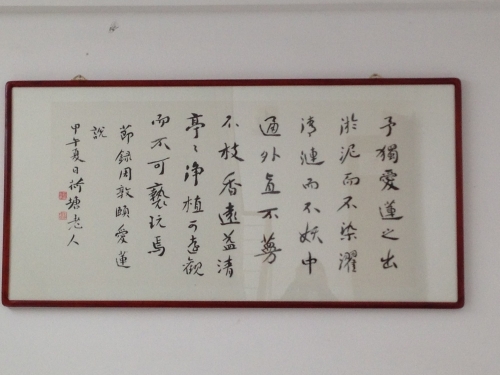 予獨愛蓮之出
淤泥而不染濯
清漣而不妖中
通外直不蔓
不枝香遠益清
亭〻淨植可遠觀
而不可褻玩焉
節録周敦頤愛蓮
說
甲午夏日荷塘老人